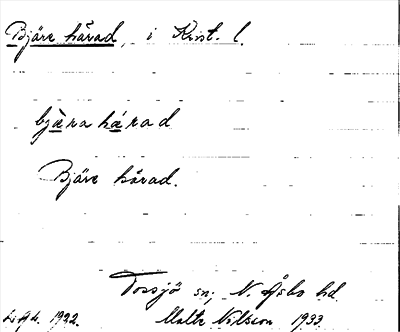 Bjäre härad, i Krist. l.
bjära hárad
Bjäre härad.
Tossjö sn; N. Åsbo hd.
1932. Malte Nilsson 1933